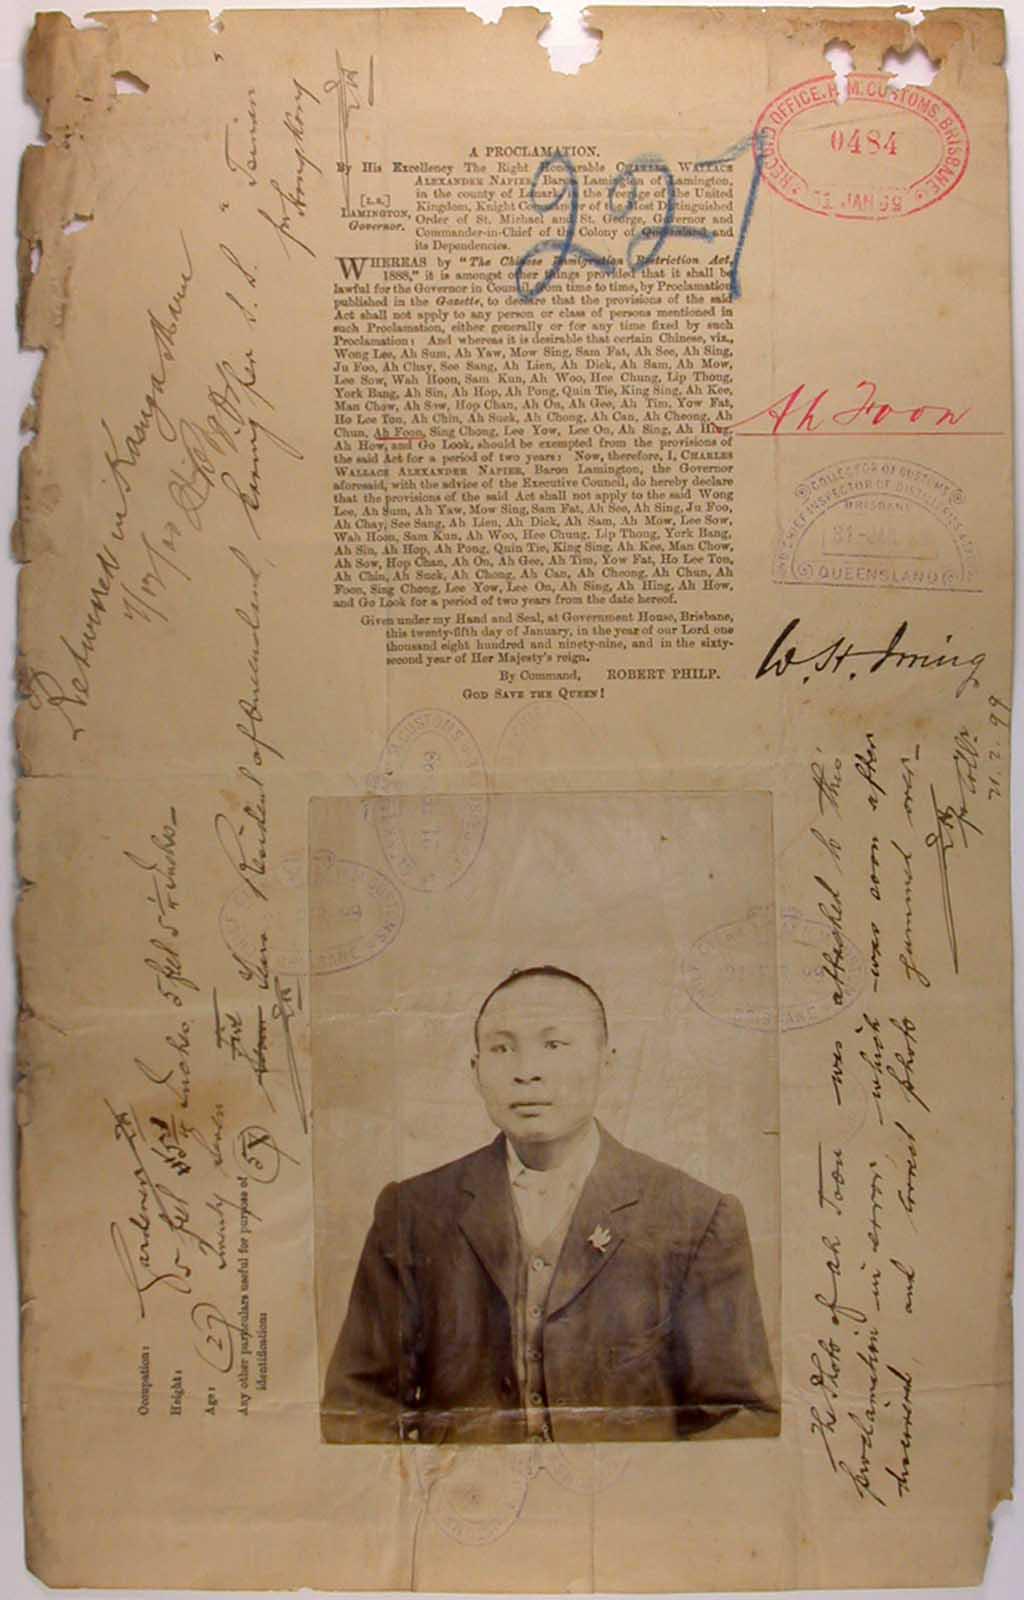 RECORD OFFICE. H.M. CUSTOMS. BRISBANE
0484
31 JAN 99
227
A PROCLAMATION.
By His Excellency The Right Honourable CHARLES WALLACE
ALEXANDER NAPIER, Baron Lamington of Lamington,
in the county of Lanark, in the Peerage of the United
Kingdom, Knight Commander of the Most Distinguished
Order of St. Michael and St. George, Governor and
Commander-in-Chief of the Colony of Queensland and
its Dependencies.
[L.S.]
LAMINGTON,
Governor.
WHEREAS by "The Chinese Immigration Restriction Act,
1888," it is amongst other things provided that it shall be
lawful for the Governor in Council, from time to time, by Proclamation
published in the Gazette, to declare that the provisions of the said
Act shall not apply to any person or class of persons mentioned in
such Proclamation, either generally or for any time fixed by such
Proclamation: And whereas it is desirable that certain Chinese, viz.,
Wong Lee, Ah Sum, Ah Yaw, Mow Sing, Sam Fat, Ah See, Ah Sing,
Ju Foo, Ah Chay, See Sang, Ah Lien, Ah Dick, Ah Sam, Ah Mow,
Lee Sow, Wah Hoon, Sam Kun, Ah Woo, Hee Chung, Lip Thong,
York Bang, Ah Sin, Ah Hop, Ah Pong, Quin Tie, King Sing, Ah Kee,
Man Chow, Ah Sow, Hop Chan, Ah On, Ah Gee, Ah Tim, Yow Fat,
Ho Lee Ton, Ah Chin, Ah Suck, Ah Chong, Ah Can, Ah Cheong, Ah
Chun, Ah Foon, Sing Chong, Lee Yow, Lee On, Ah Sing, Ah Hing,
Ah How, and Go Look, should be exempted from the provisions of
the said Act for a period of two years: Now, therefore, I, CHARLES
WALLACE ALEXANDER NAPIER, Baron Lamington, the Governor
aforesaid, with the advice of the Executive Council, do hereby declare
that the provisions of the said Act shall not apply to the said Wong
Lee, Ah Sum, Ah Yaw, Mow Sing, Sam Fat, Ah See, Ah Sing, Ju Foo,
Ah Chay, See Sang, Ah Lien, Ah Dick, Ah Sam, Ah Mow, Lee Sow,
Wah Hoon, Sam Kun, Ah Woo, Hee Chung, Lip Thong, York Bang,
Ah Sin, Ah Hop, Ah Pong, Quin Tie, King Sing, Ah Kee, Man Chow,
Ah Sow, Hop Chan, Ah On, Ah Gee, Ah Tim, Yow Fat, Ho Lee Ton,
Ah Chin, Ah Suck, Ah Chong, Ah Can, Ah Cheong, Ah Chun, Ah
Foon, Sing Chong, Lee Yow, Lee On, Ah Sing, Ah Hing, Ah How,
and Go Look for a period of two years from the date hereof.
Given under my Hand and Seal, at Government House, Brisbane,
this twenty-fifth day of January, in the year of our Lord one
thousand eight hundred and ninety-nine, and in the sixty-
second year of Her Majesty's reign.
By Command, ROBERT PHILP.
GOD SAVE THE QUEEN!
Ah Foon
COLLECTOR OF CUSTOMS
AND CHIEF INSPECTOR OF DISTILLERIES
BRISBANE
QUEENSLAND
W. H. Irving
The Photo of Ah Foon was attached to this
proclamation in error which was soon after
discovered, and correct photo gummed over
21.2.99
Occupation: Gardener
Height: 5 feet Inches 5 feet 5 Inches
Age: (27) twenty seven
Any other particulars useful for purpose of
identification:
Five
Years Resident of Queensland, leaving per S.S. "Tsinan"
for Hong Kong
Returned in